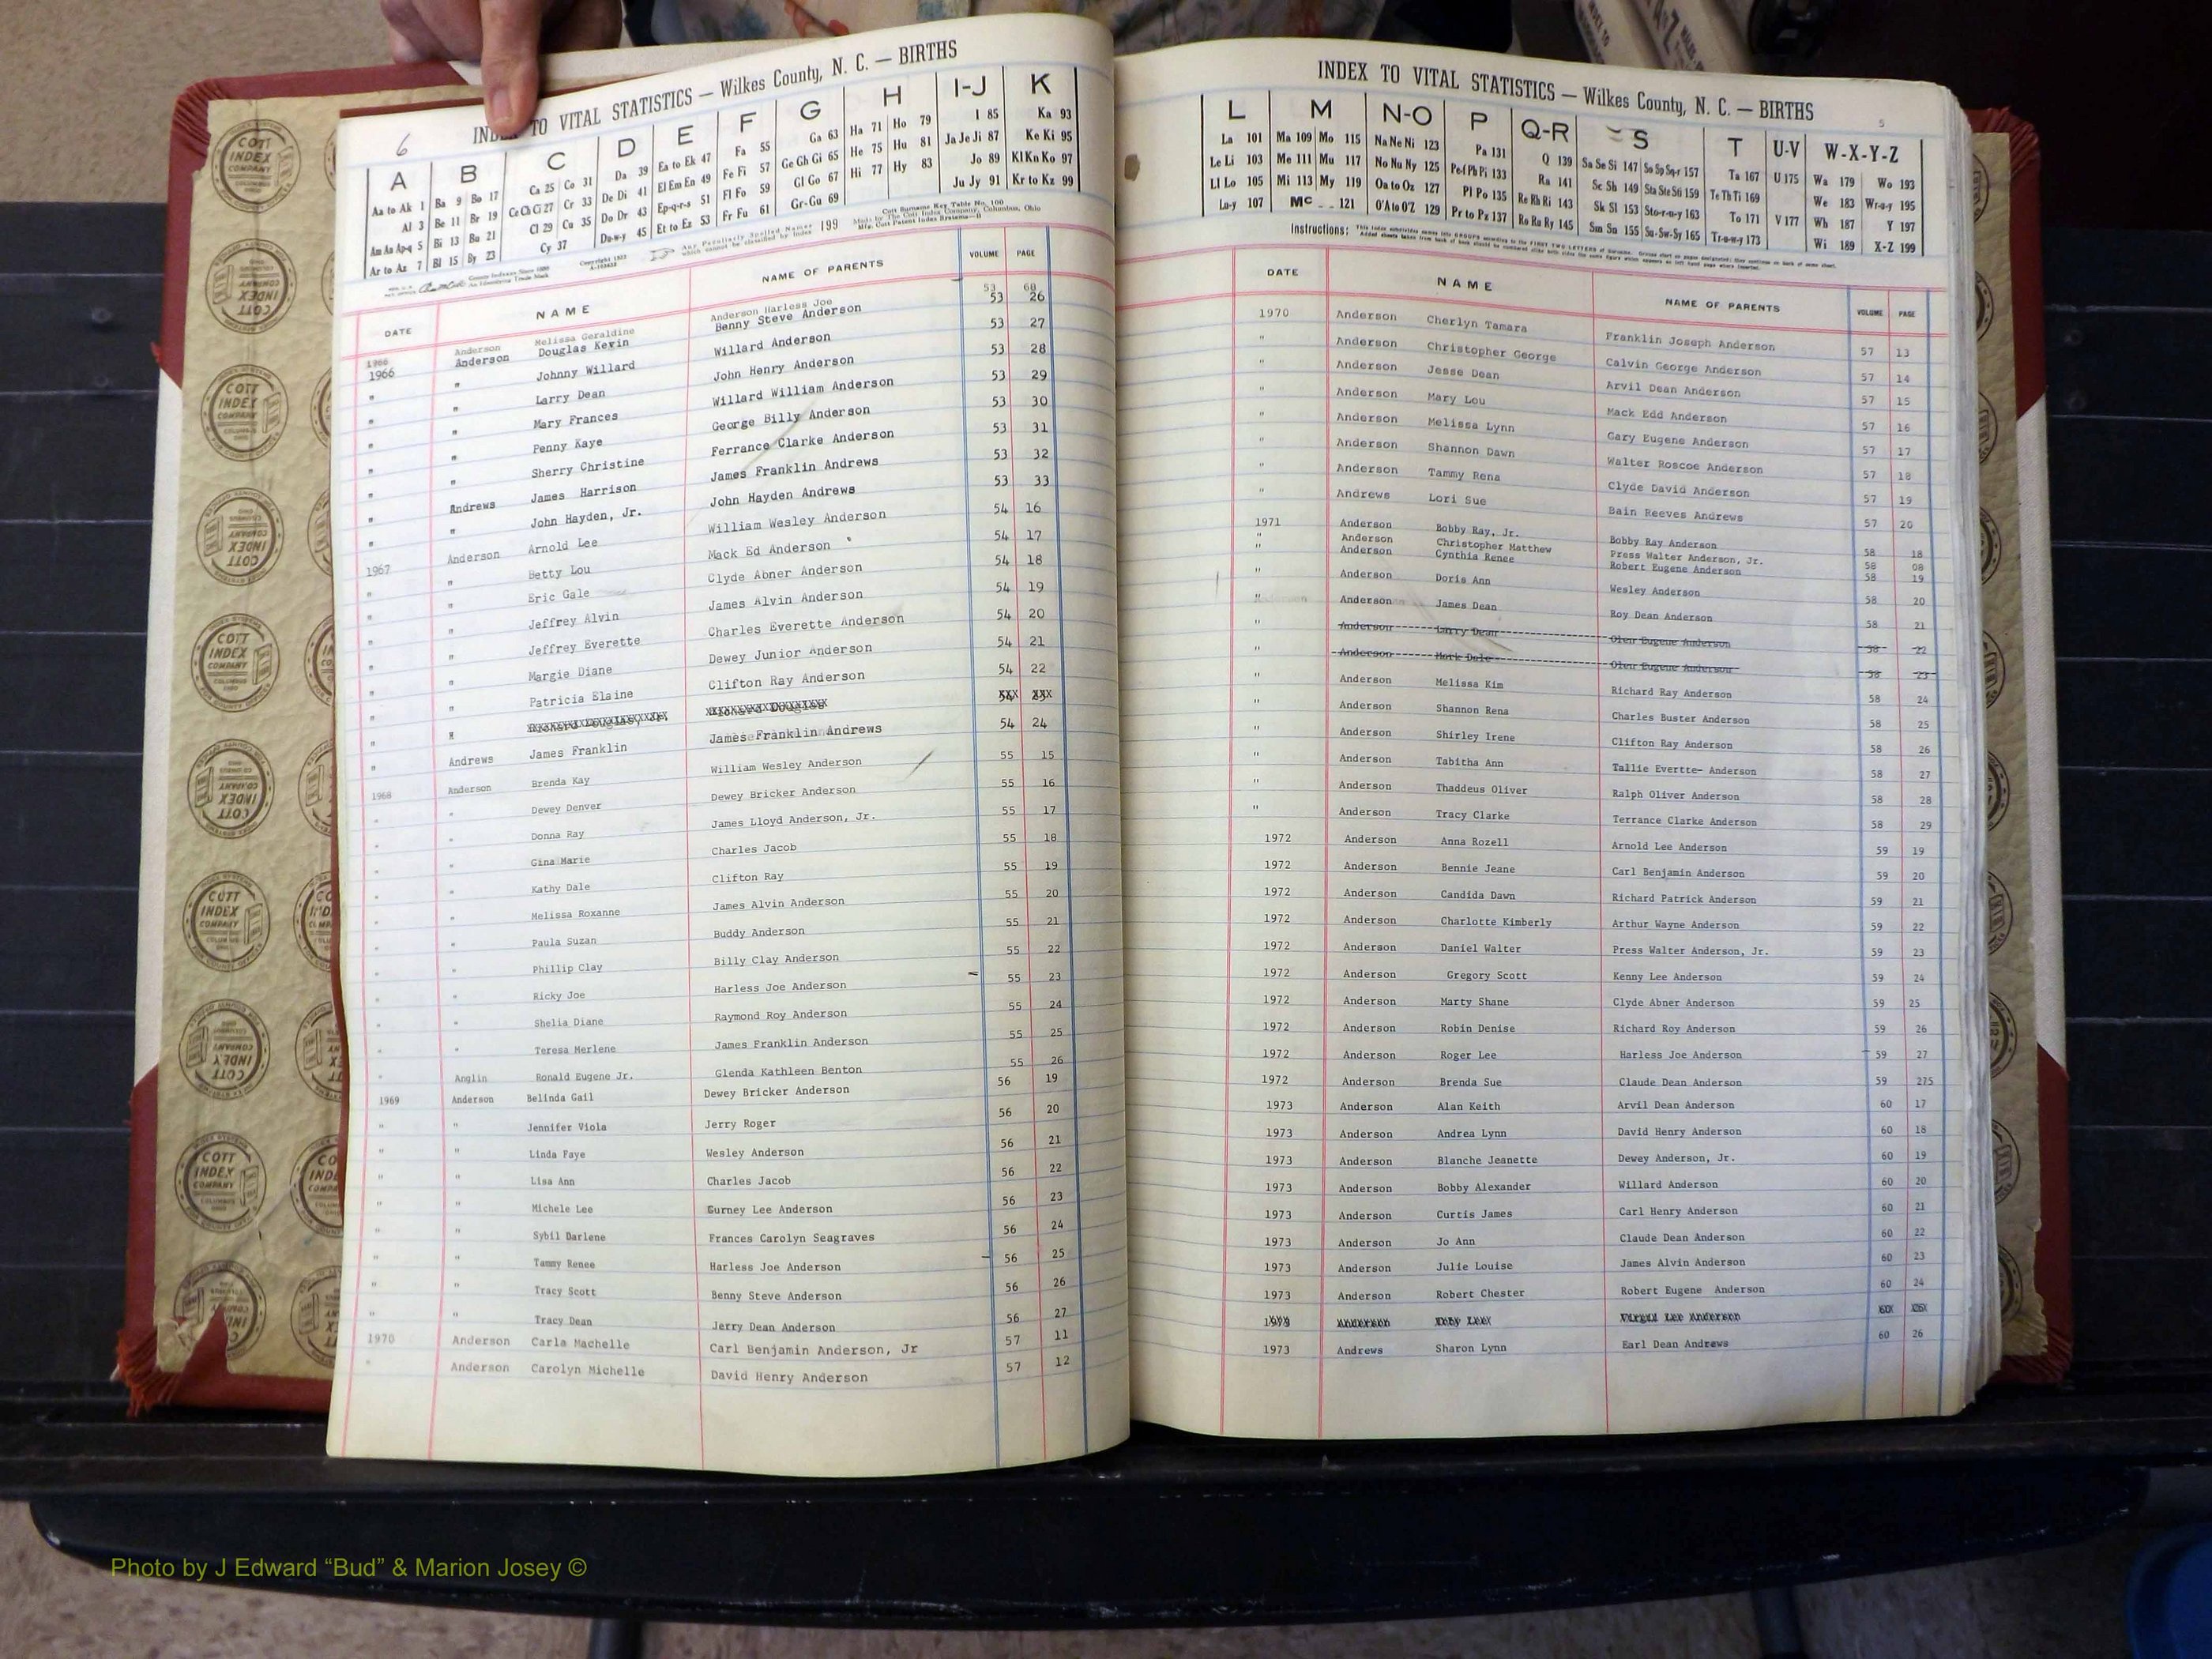 INDEX TO VITAL STATISTICS — Wilkes County, N. C. — BIRTHS
6
A B C D E F G H I-J K
Aa to Ak 1 Ba 9 Bo 17 Ca 25 Co 31 Da 39 Ea to Ek 47 Fa 55 Ga 63 Ha 71 Ho 79 I 85 Ka 93
Al 3 Be 11 Br 19 Ce Ch Ci 27 Cr 33 De Di 41 El Em En 49 Fe Fi 57 Ge Gh Gi 65 He 75 Hu 81 Ja Je Ji 87 Ke Ki 95
Am An Ap-q 5 Bi 13 Bu 21 Cl 29 Cu 35 Do Dr 43 Ep-q-r-s 51 Fl Fo 59 Gl Go 67 Hi 77 Hy 83 Jo 89 Kl Kn Ko 97
Ar to Az 7 Bl 15 By 23 Cy 37 Du-w-y 45 Et to Ez 53 Fr Fu 61 Gr-Gu 69 Ju Jy 91 Kr to Kz 99
Any Peculiarly Spelled Names which cannot be classified by Index 199
Cott Surname Key Table No. 100
Made by The Cott Index Company, Columbus, Ohio
DATE NAME NAME OF PARENTS VOLUME PAGE
1966 Anderson Melissa Geraldine Anderson Harless Joe 53 60
1966 Anderson Douglas Kevin Benny Steve Anderson 53 26
" " Johnny Willard Willard Anderson 53 27
" " Larry Dean John Henry Anderson 53 28
" " Mary Frances Willard William Anderson 53 29
" " Penny Kaye George Billy Anderson 53 30
" " Sherry Christine Ferrance Clarke Anderson 53 31
" Andrews James Harrison James Franklin Andrews 53 32
" " John Hayden, Jr. John Hayden Andrews 53 33
1967 Anderson Arnold Lee William Wesley Anderson 54 16
" " Betty Lou Mack Ed Anderson 54 17
" " Eric Gale Clyde Abner Anderson 54 18
" " Jeffrey Alvin James Alvin Anderson 54 19
" " Jeffrey Everette Charles Everette Anderson 54 20
" " Margie Diane Dewey Junior Anderson 54 21
" " Patricia Elaine Clifton Ray Anderson 54 22
" Andrews James Franklin James Franklin Andrews 54 24
1968 Anderson Brenda Kay William Wesley Anderson 55 15
" " Dewey Denver Dewey Bricker Anderson 55 16
" " Donna Ray James Lloyd Anderson, Jr. 55 17
" " Gina Marie Charles Jacob 55 18
" " Kathy Dale Clifton Ray 55 19
" " Melissa Roxanne James Alvin Anderson 55 20
" " Paula Suzan Buddy Anderson 55 21
" " Phillip Clay Billy Clay Anderson 55 22
" " Ricky Joe Harless Joe Anderson 55 23
" " Shelia Diane Raymond Roy Anderson 55 24
" " Teresa Merlene James Franklin Anderson 55 25
" Anglin Ronald Eugene Jr. Glenda Kathleen Benton 55 26
1969 Anderson Belinda Gail Dewey Bricker Anderson 56 19
" " Jennifer Viola Jerry Roger 56 20
" " Linda Faye Wesley Anderson 56 21
" " Lisa Ann Charles Jacob 56 22
" " Michele Lee Gurney Lee Anderson 56 23
" " Sybil Darlene Frances Carolyn Seagraves 56 24
" " Tammy Renee Harless Joe Anderson 56 25
" " Tracy Scott Benny Steve Anderson 56 26
" " Tracy Dean Jerry Dean Anderson 56 27
1970 Anderson Carla Machelle Carl Benjamin Anderson, Jr 57 11
" Anderson Carolyn Michelle David Henry Anderson 57 12
INDEX TO VITAL STATISTICS — Wilkes County, N. C. — BIRTHS
5
L M N-O P Q-R S T U-V W-X-Y-Z
La 101 Ma 109 Mo 115 Na Ne Ni 123 Pa 131 Q 139 Sa Se Si 147 So Sp Sq-r 157 Ta 167 U 175 Wa 179 Wo 193
Le Li 103 Me 111 Mu 117 No Nu Ny 125 Pe-f Ph Pi 133 Ra 141 Sc Sh 149 Sta Ste Sti 159 Te Th Ti 169 We 183 Wr-u-y 195
Ll Lo 105 Mi 113 My 119 Oa to Oz 127 Pl Po 135 Re Rh Ri 143 Sk Sl 153 Sto-r-u-y 163 To 171 V 177 Wh 187 Y 197
Lu-y 107 Mc 121 O'A to O'Z 129 Pr to Pz 137 Ro Ru Ry 145 Sm Sn 155 Su-Sw-Sy 165 Tr-u-w-y 173 Wi 189 X-Z 199
Instructions:
DATE NAME NAME OF PARENTS VOLUME PAGE
1970 Anderson Cherlyn Tamara Franklin Joseph Anderson 57 13
" Anderson Christopher George Calvin George Anderson 57 14
" Anderson Jesse Dean Arvil Dean Anderson 57 15
" Anderson Mary Lou Mack Edd Anderson 57 16
" Anderson Melissa Lynn Gary Eugene Anderson 57 17
" Anderson Shannon Dawn Walter Roscoe Anderson 57 18
" Anderson Tammy Rena Clyde David Anderson 57 19
" Andrews Lori Sue Bain Reeves Andrews 57 20
1971 Anderson Bobby Ray, Jr. Bobby Ray Anderson 58 18
" Anderson Christopher Matthew Press Walter Anderson, Jr. 58 08
" Anderson Cynthia Renee Robert Eugene Anderson 58 19
" Anderson Doris Ann Wesley Anderson 58 20
" Anderson James Dean Roy Dean Anderson 58 21
" Anderson Larry Dean Olen Eugene Anderson 58 22
" Anderson Mark Dale Olen Eugene Anderson 58 23
" Anderson Melissa Kim Richard Ray Anderson 58 24
" Anderson Shannon Rena Charles Buster Anderson 58 25
" Anderson Shirley Irene Clifton Ray Anderson 58 26
" Anderson Tabitha Ann Tallie Evertte- Anderson 58 27
" Anderson Thaddeus Oliver Ralph Oliver Anderson 58 28
" Anderson Tracy Clarke Terrance Clarke Anderson 58 29
1972 Anderson Anna Rozell Arnold Lee Anderson 59 19
1972 Anderson Bennie Jeane Carl Benjamin Anderson 59 20
1972 Anderson Candida Dawn Richard Patrick Anderson 59 21
1972 Anderson Charlotte Kimberly Arthur Wayne Anderson 59 22
1972 Anderson Daniel Walter Press Walter Anderson, Jr. 59 23
1972 Anderson Gregory Scott Kenny Lee Anderson 59 24
1972 Anderson Marty Shane Clyde Abner Anderson 59 25
1972 Anderson Robin Denise Richard Roy Anderson 59 26
1972 Anderson Roger Lee Harless Joe Anderson 59 27
1972 Anderson Brenda Sue Claude Dean Anderson 59 275
1973 Anderson Alan Keith Arvil Dean Anderson 60 17
1973 Anderson Andrea Lynn David Henry Anderson 60 18
1973 Anderson Blanche Jeanette Dewey Anderson, Jr. 60 19
1973 Anderson Bobby Alexander Willard Anderson 60 20
1973 Anderson Curtis James Carl Henry Anderson 60 21
1973 Anderson Jo Ann Claude Dean Anderson 60 22
1973 Anderson Julie Louise James Alvin Anderson 60 23
1973 Anderson Robert Chester Robert Eugene Anderson 60 24
1973 Andrews Sharon Lynn Earl Dean Andrews 60 26
COTT INDEX COMPANY COLUMBUS OHIO
Photo by J Edward “Bud” & Marion Josey ©